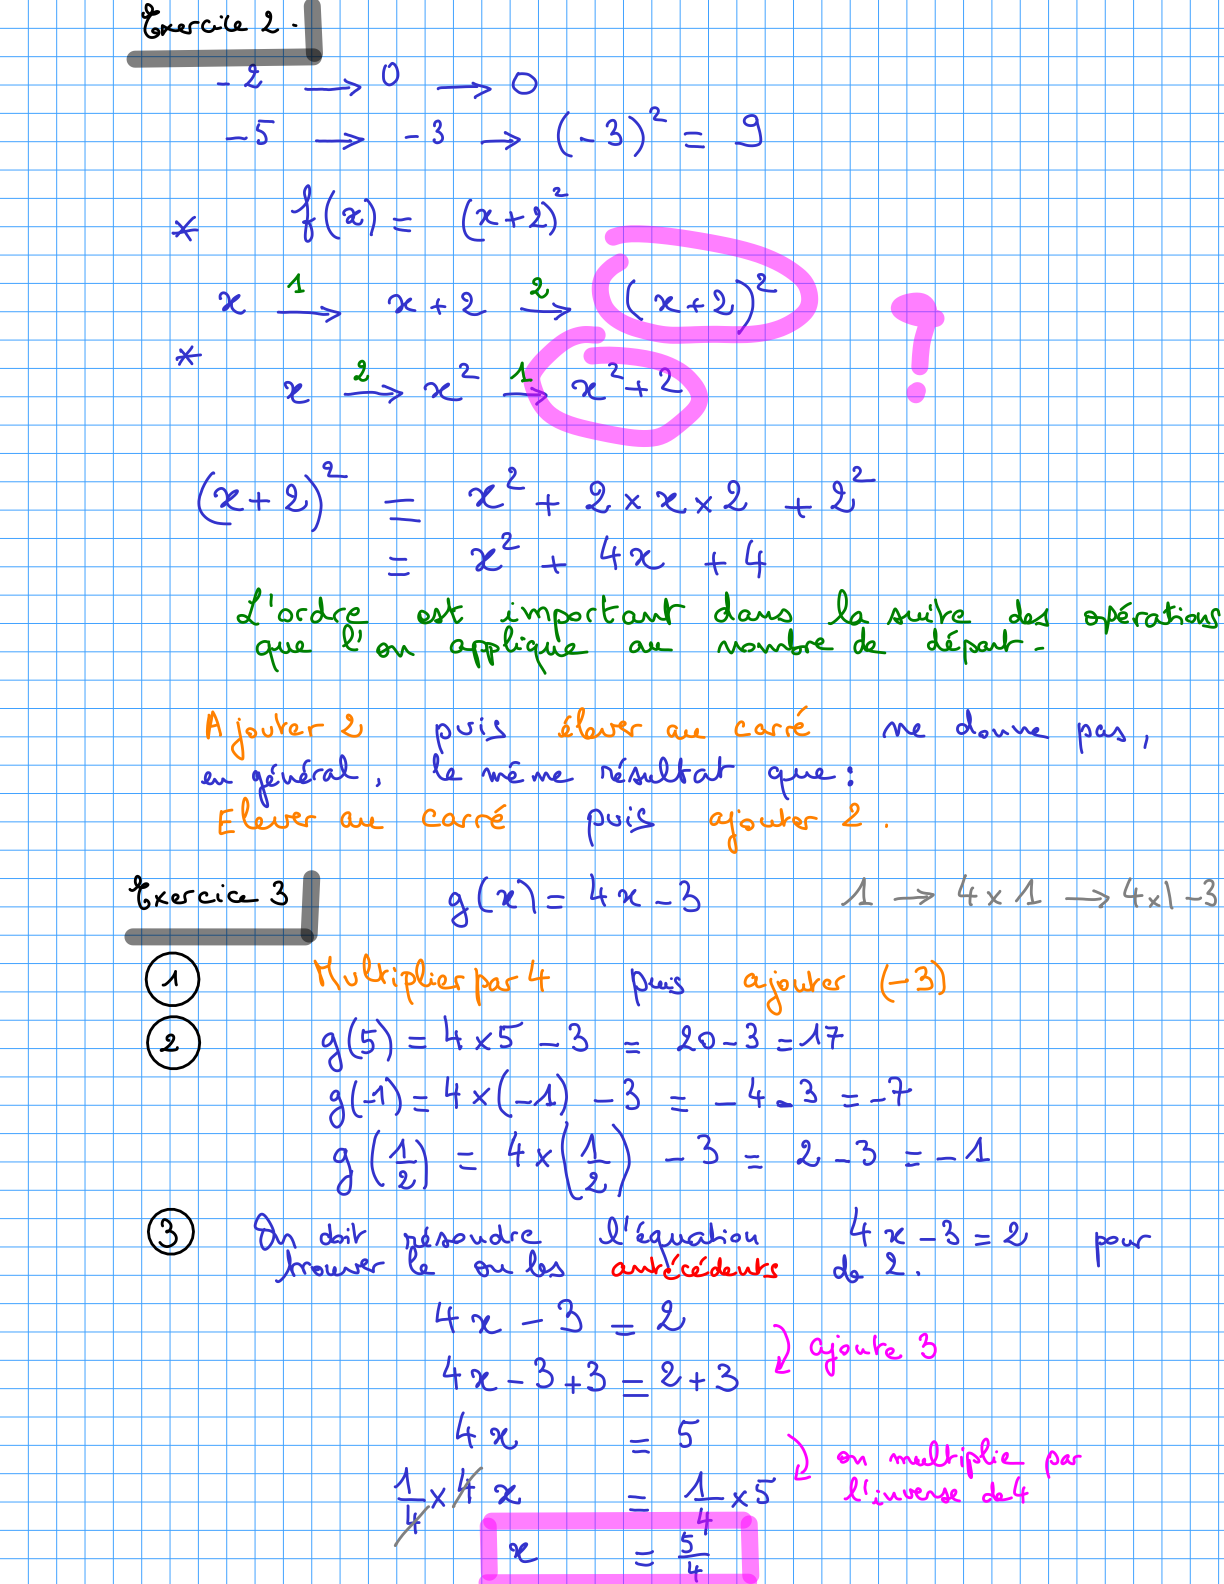 Exercice 2.
-2 → 0 → 0
-5 → -3 → (-3)² = 9
* f(x) = (x+2)²
x →¹ x+2 →² (x+2)² ?
*
x →² x² →¹ x²+2
(x+2)² = x² + 2×x×2 + 2²
= x² + 4x + 4
L'ordre est important dans la suite des opérations
que l'on applique au nombre de départ.
Ajouter 2 puis élever au carré ne donne pas,
en général, le même résultat que :
Elever au carré puis ajouter 2.
Exercice 3 g(x) = 4x-3 1 → 4×1 → 4×1-3
① Multiplier par 4 puis ajouter (-3)
② g(5) = 4×5 - 3 = 20-3 = 17
g(-1) = 4×(-1) - 3 = -4-3 = -7
g(1/2) = 4×(1/2) - 3 = 2-3 = -1
③ On doit résoudre l'équation 4x-3=2 pour
trouver le ou les antécédents de 2.
4x - 3 = 2
ajoute 3
4x-3+3 = 2+3
4x = 5
on multiplie par
l'inverse de 4
1/4 × 4 x = 1/4 × 5
x = 5/4